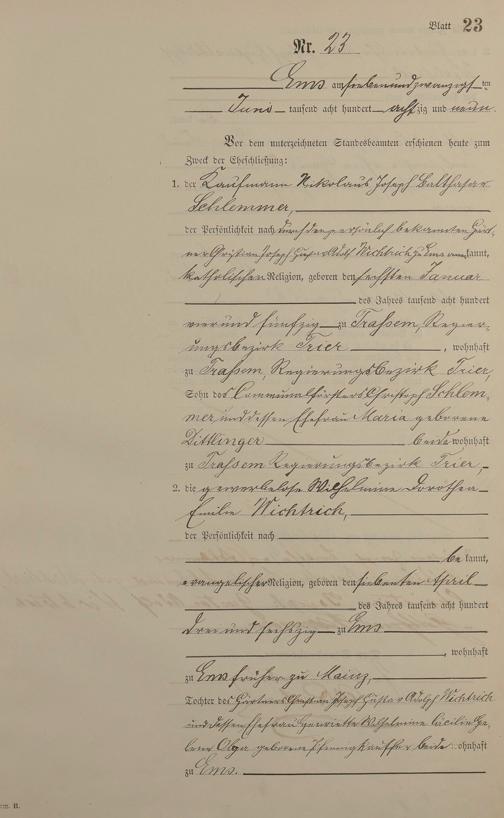 Blatt 23
Nr. 23
Ems am siebenundzwanzigsten
Juni tausend acht hundert achtzig und neun.
Vor dem unterzeichneten Standesbeamten erschienen heute zum
Zweck der Eheschließung:
1. der Kaufmann Nikolaus Joseph Balthasar
Schlemmer,
der Persönlichkeit nach durch den persönlich bekannten Gärt-
ner Christian Joseph Gustav Adolf Wichtrich zu Ems anerkannt,
katholischer Religion, geboren den sechsten Januar
des Jahres tausend acht hundert
vier und fünfzig zu Trassem, Regier-
ungsbezirk Trier, wohnhaft
zu Trassem, Regierungsbezirk Trier,
Sohn des Communalförsters Christoph Schlem-
mer und dessen Ehefrau Maria geborene
Dittlinger beide wohnhaft
zu Trassem Regierungsbezirk Trier
2. die gewerbelose Wilhelmine Dorothea
Emilie Wichtrich,
der Persönlichkeit nach
bekannt,
evangelischer Religion, geboren den siebenten April
des Jahres tausend acht hundert
drei und sechszig zu Ems
, wohnhaft
zu Ems früher zu Mainz,
Tochter des Gärtners Christian Joseph Gustav Adolph Wichtrich
und dessen Ehefrau Henriette Wilhelmine Cäcilie He-
lene Olga geborene Pfennigkauffer beide wohnhaft
zu Ems.